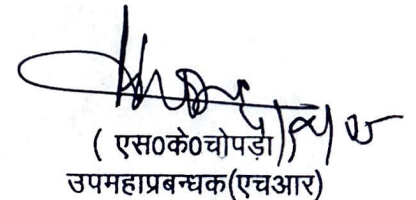 ( एस0के0चोपड़ा)
उपमहाप्रबन्धक(एचआर)